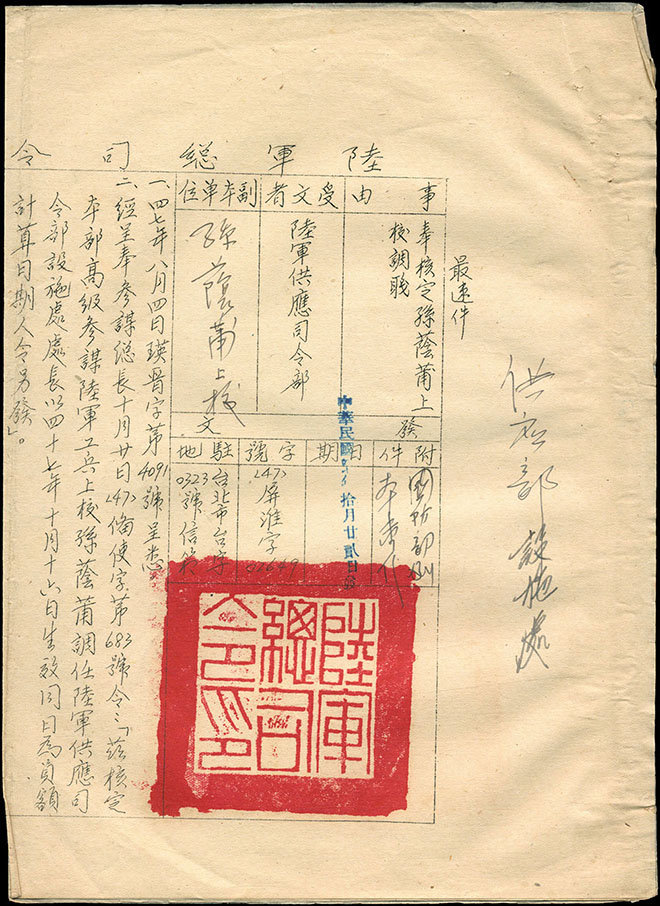 供應部設施處
最速件
陸軍總司令
事由
奉核定孫蔭莆上
校調職
受文者
陸軍供應司令部
副本單位
孫蔭莆上校
附件
發文
日期
中華民國 拾月廿貳日
字號
(47)屏淮字
駐地
台北市台字
0323號信箱
一、四七年八月四日瑛晋字第4091號呈悉
二、經呈奉參謀總長十月廿日(47)俻使字第683號令:「茲核定
本部高級參謀陸軍工兵上校孫蔭莆調任陸軍供應司
令部設施處處長以四十七年十月十六日生效同日為員額
計算日期人令另發」。
陸軍總司令部印